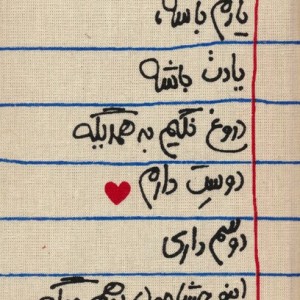 یادم باشه،
یادت باشه
دروغ نگیم به همدیگه
دوستِ دارم
دوسم داری
اینو چشامون